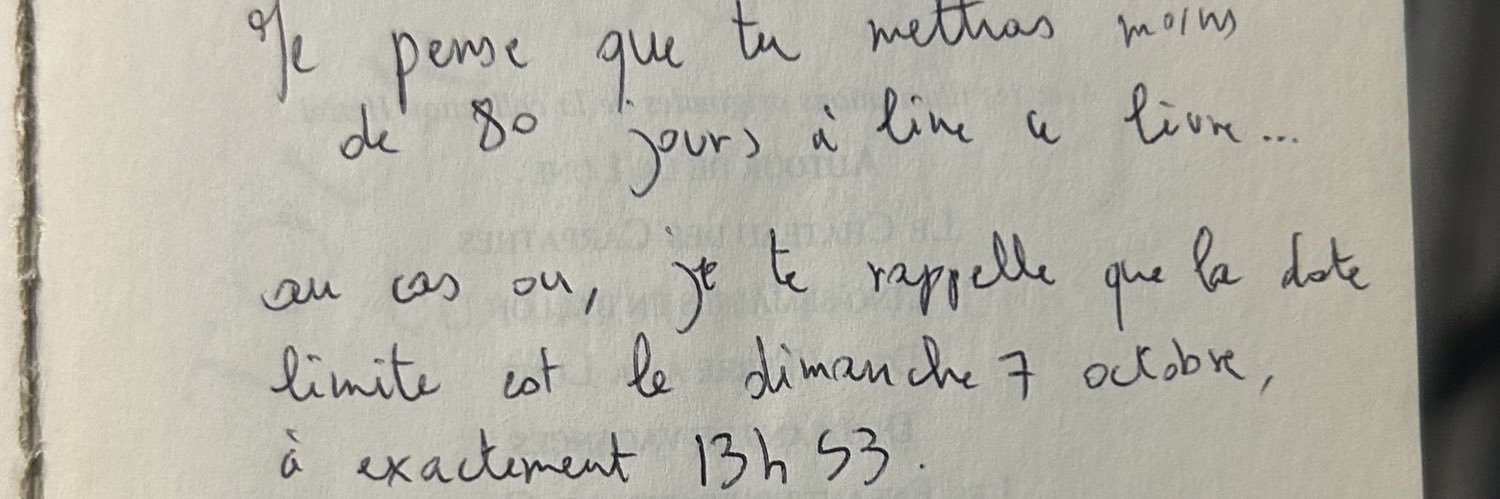 Je pense que tu mettras moins
de 80 jours à lire ce livre...
au cas ou, je te rappelle que la date
limite est le dimanche 7 octobre,
à exactement 13h53.